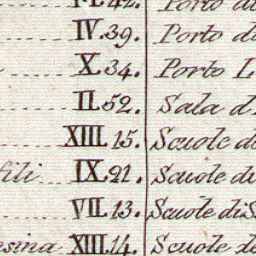 I.42. Porto d
IV.39. Porto d
X.34. Porto L
II.52. Sala d
XIII.15. Scuole d
fili IX.21. Scuole di
VII.13. Scuole di S
esina XIII.14. Scuole de